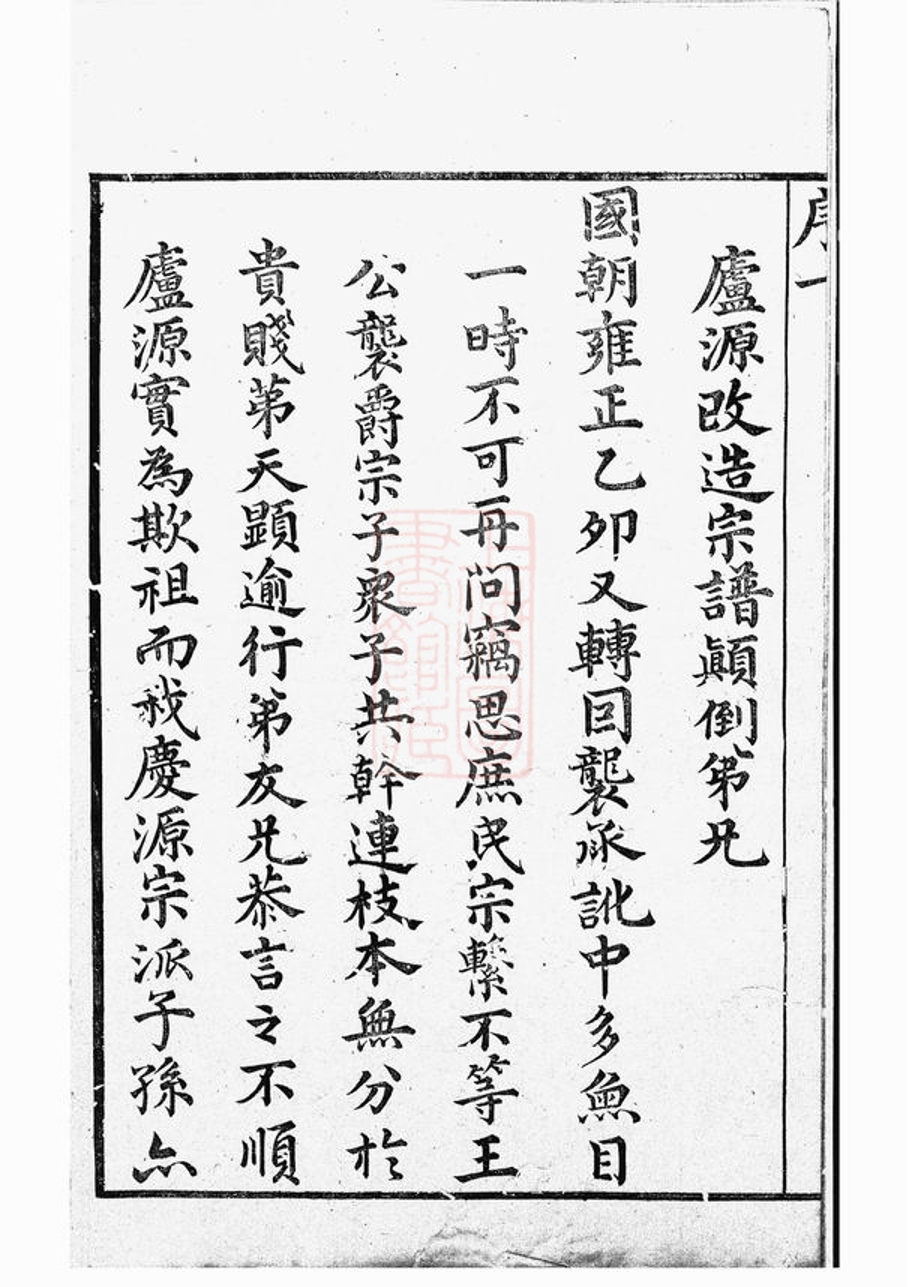 序一
廬源改造宗譜顛倒第兄
國朝雍正乙卯又轉囙襲承訛中多魚目
一時不可再问竊思庶民宗繫不等王
公襲爵宗子衆子共幹連枝本無分於
貴賤苐天顯逾行第友兄恭言之不順
廬源實為欺祖而我慶源宗派子孫亦